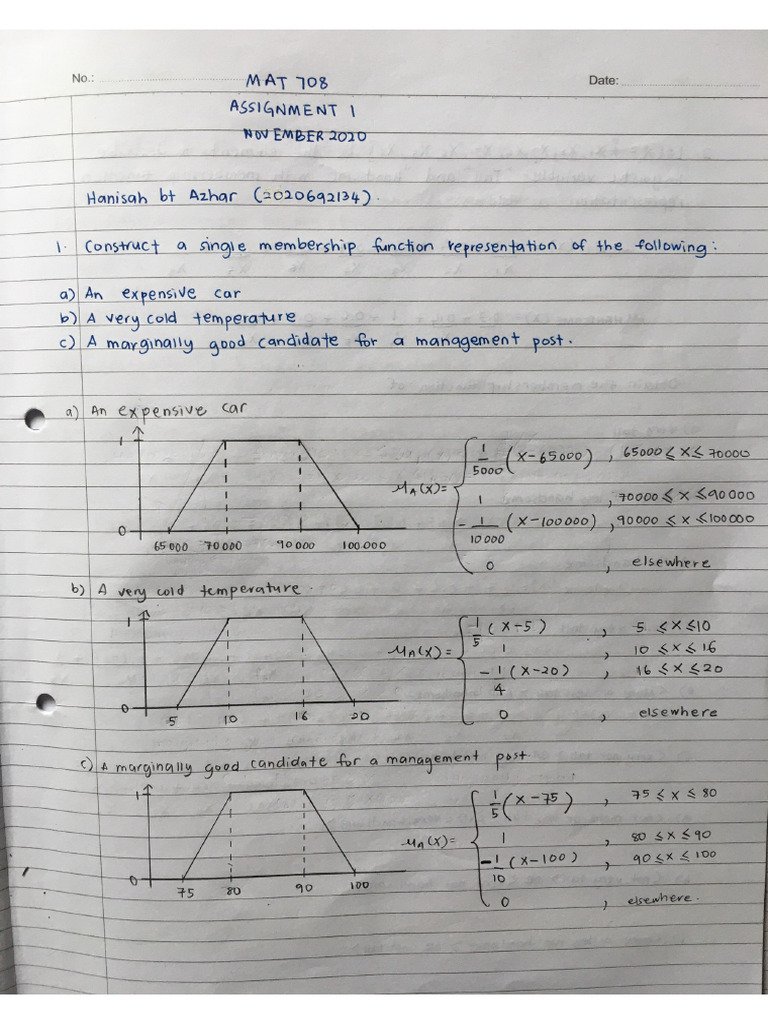 No.:
MAT 708
Date:
ASSIGNMENT 1
NOVEMBER 2020
Hanisah bt Azhar (2020692134).
1. Construct a single membership function representation of the following:
a) An expensive car
b) A very cold temperature
c) A marginally good candidate for a management post.
a) An expensive car
1
0
65000 70000 90000 100000
μA(x)=
1/5000 (x-65000) , 65000 ≤ x ≤ 70000
1 , 70000 ≤ x ≤ 90000
-1/10000 (x-100000) , 90000 ≤ x ≤ 100000
0 , elsewhere
b) A very cold temperature.
1
0
5 10 16 20
μA(x)=
1/5 (x-5) , 5 ≤ x ≤ 10
1 , 10 ≤ x ≤ 16
-1/4 (x-20) , 16 ≤ x ≤ 20
0 , elsewhere
c) A marginally good candidate for a management post.
1
0
75 80 90 100
μA(x)=
1/5 (x-75) , 75 ≤ x ≤ 80
1 , 80 ≤ x ≤ 90
-1/10 (x-100) , 90 ≤ x ≤ 100
0 , elsewhere.